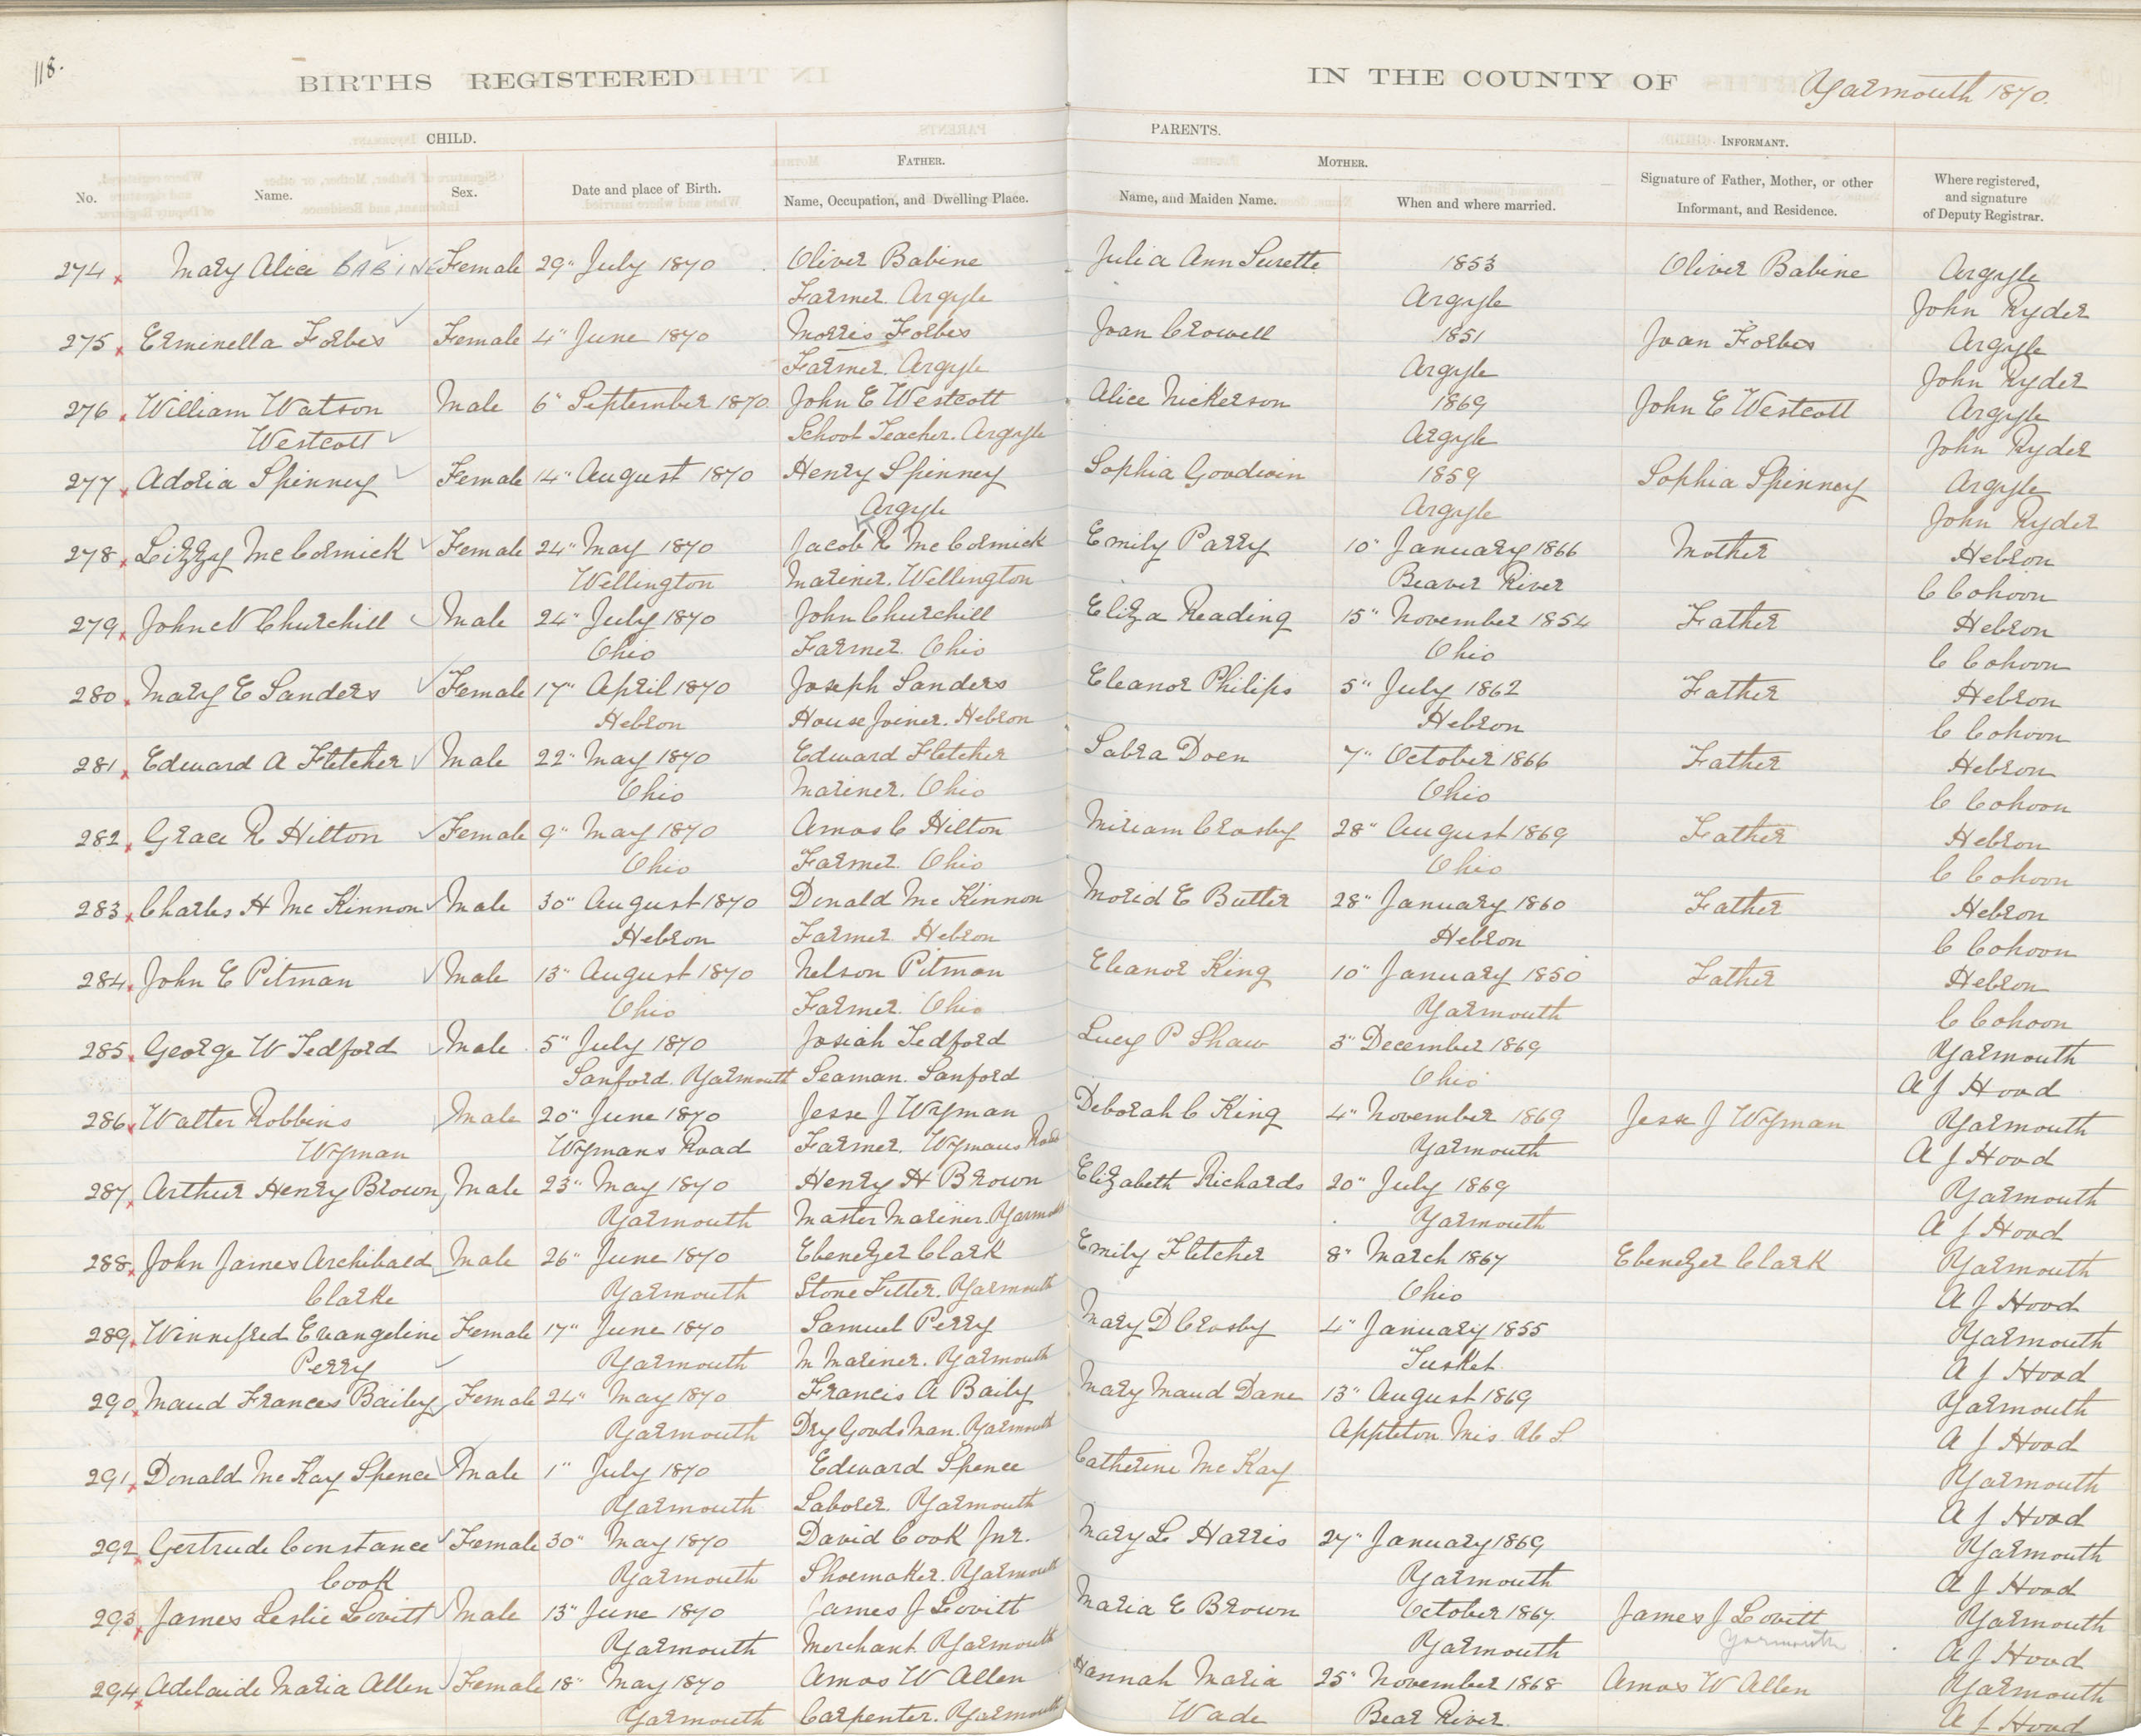 118.
BIRTHS REGISTERED IN THE COUNTY OF Yarmouth 1870.
CHILD. PARENTS. INFORMANT.
FATHER. MOTHER.
No. Name. Sex. Date and place of Birth. Name, Occupation, and Dwelling Place. Name, and Maiden Name. When and where married. Signature of Father, Mother, or other Informant, and Residence. Where registered, and signature of Deputy Registrar.
274 Mary Alice BABINE Female 29" July 1870 Oliver Babine Julia Ann Surette 1853 Oliver Babine Argyle
Farmer. Argyle Argyle John Ryder
275 Erminella Forbes Female 4" June 1870 Morris Forbes Joan Crowell 1851 Joan Forbes Argyle
Farmer. Argyle Argyle John Ryder
276 William Watson Male 6" September 1870 John E Westcott Alice Nickerson 1869 John E Westcott Argyle
Westcott School Teacher. Argyle Argyle John Ryder
277 Adoria Spinney Female 14" August 1870 Henry Spinney Sophia Goodwin 1859 Sophia Spinney Argyle
Argyle Argyle John Ryder
278 Lizzy McCormick Female 24" May 1870 Jacob R McCormick Emily Parry 10" January 1866 Mother Hebron
Wellington Mariner. Wellington Beaver River C Cohoon
279 John N Churchill Male 24" July 1870 John Churchill Eliza Reading 15" November 1854 Father Hebron
Ohio Farmer. Ohio Ohio C Cohoon
280 Mary E Sanders Female 17" April 1870 Joseph Sanders Eleanor Philips 5" July 1862 Father Hebron
Hebron House Joiner. Hebron Hebron C Cohoon
281 Edward A Fletcher Male 22" May 1870 Edward Fletcher Sabra Doen 7" October 1866 Father Hebron
Ohio Mariner. Ohio Ohio C Cohoon
282 Grace R Hilton Female 9" May 1870 Amos C Hilton Miriam Crosby 28" August 1869 Father Hebron
Ohio Farmer. Ohio Ohio C Cohoon
283 Charles H McKinnon Male 30" August 1870 Donald McKinnon Morid E Butler 28" January 1860 Father Hebron
Hebron Farmer Hebron Hebron C Cohoon
284 John E Pitman Male 13" August 1870 Nelson Pitman Eleanor King 10" January 1850 Father Hebron
Ohio Farmer. Ohio Yarmouth C Cohoon
285 George W Tedford Male 5" July 1870 Josiah Tedford Lucy P Shaw 3" December 1869 Yarmouth
Sanford. Yarmouth Seaman. Sanford Ohio A J Hood
286 Walter Robbins Male 20" June 1870 Jesse J Wyman Deborah C King 4" November 1869 Jesse J Wyman Yarmouth
Wyman Wymans Road Farmer. Wymans Road Yarmouth A J Hood
287 Arthur Henry Brown Male 23" May 1870 Henry H Brown Elizabeth Richards 20" July 1869 Yarmouth
Yarmouth Master Mariner. Yarmouth Yarmouth A J Hood
288 John James Archibald Male 26" June 1870 Ebenezer Clark Emily Fletcher 8" March 1867 Ebenezer Clark Yarmouth
Clarke Yarmouth Stone Setter. Yarmouth Ohio A J Hood
289 Winnefred Evangeline Female 17" June 1870 Samuel Perry Mary D Crosby 4" January 1855 Yarmouth
Perry Yarmouth M Mariner. Yarmouth Tusket A J Hood
290 Maud Frances Bailey Female 24" May 1870 Francis A Baily Mary Maud Dane 13" August 1869 Yarmouth
Yarmouth Dry Goods Man. Yarmouth Appleton A J Hood
291 Donald McKay Spence Male 1" July 1870 Edward Spence Catherine McKay Yarmouth
Yarmouth Laborer. Yarmouth A J Hood
292 Gertrude Constance Female 30" May 1870 David Cook Jnr. Mary L Harris 27" January 1869 Yarmouth
Cook Yarmouth Shoemaker. Yarmouth Yarmouth A J Hood
293 James Leslie Lovitt Male 13" June 1870 James J Lovitt Maria E Brown October 1867 James J Lovitt Yarmouth
Yarmouth Merchant Yarmouth Yarmouth Yarmouth A J Hood
294 Adelaide Maria Allen Female 18" May 1870 Amos W Allen Hannah Maria 25" November 1868 Amos W Allen Yarmouth
Yarmouth Carpenter. Yarmouth Wade Bear River. A J Hood